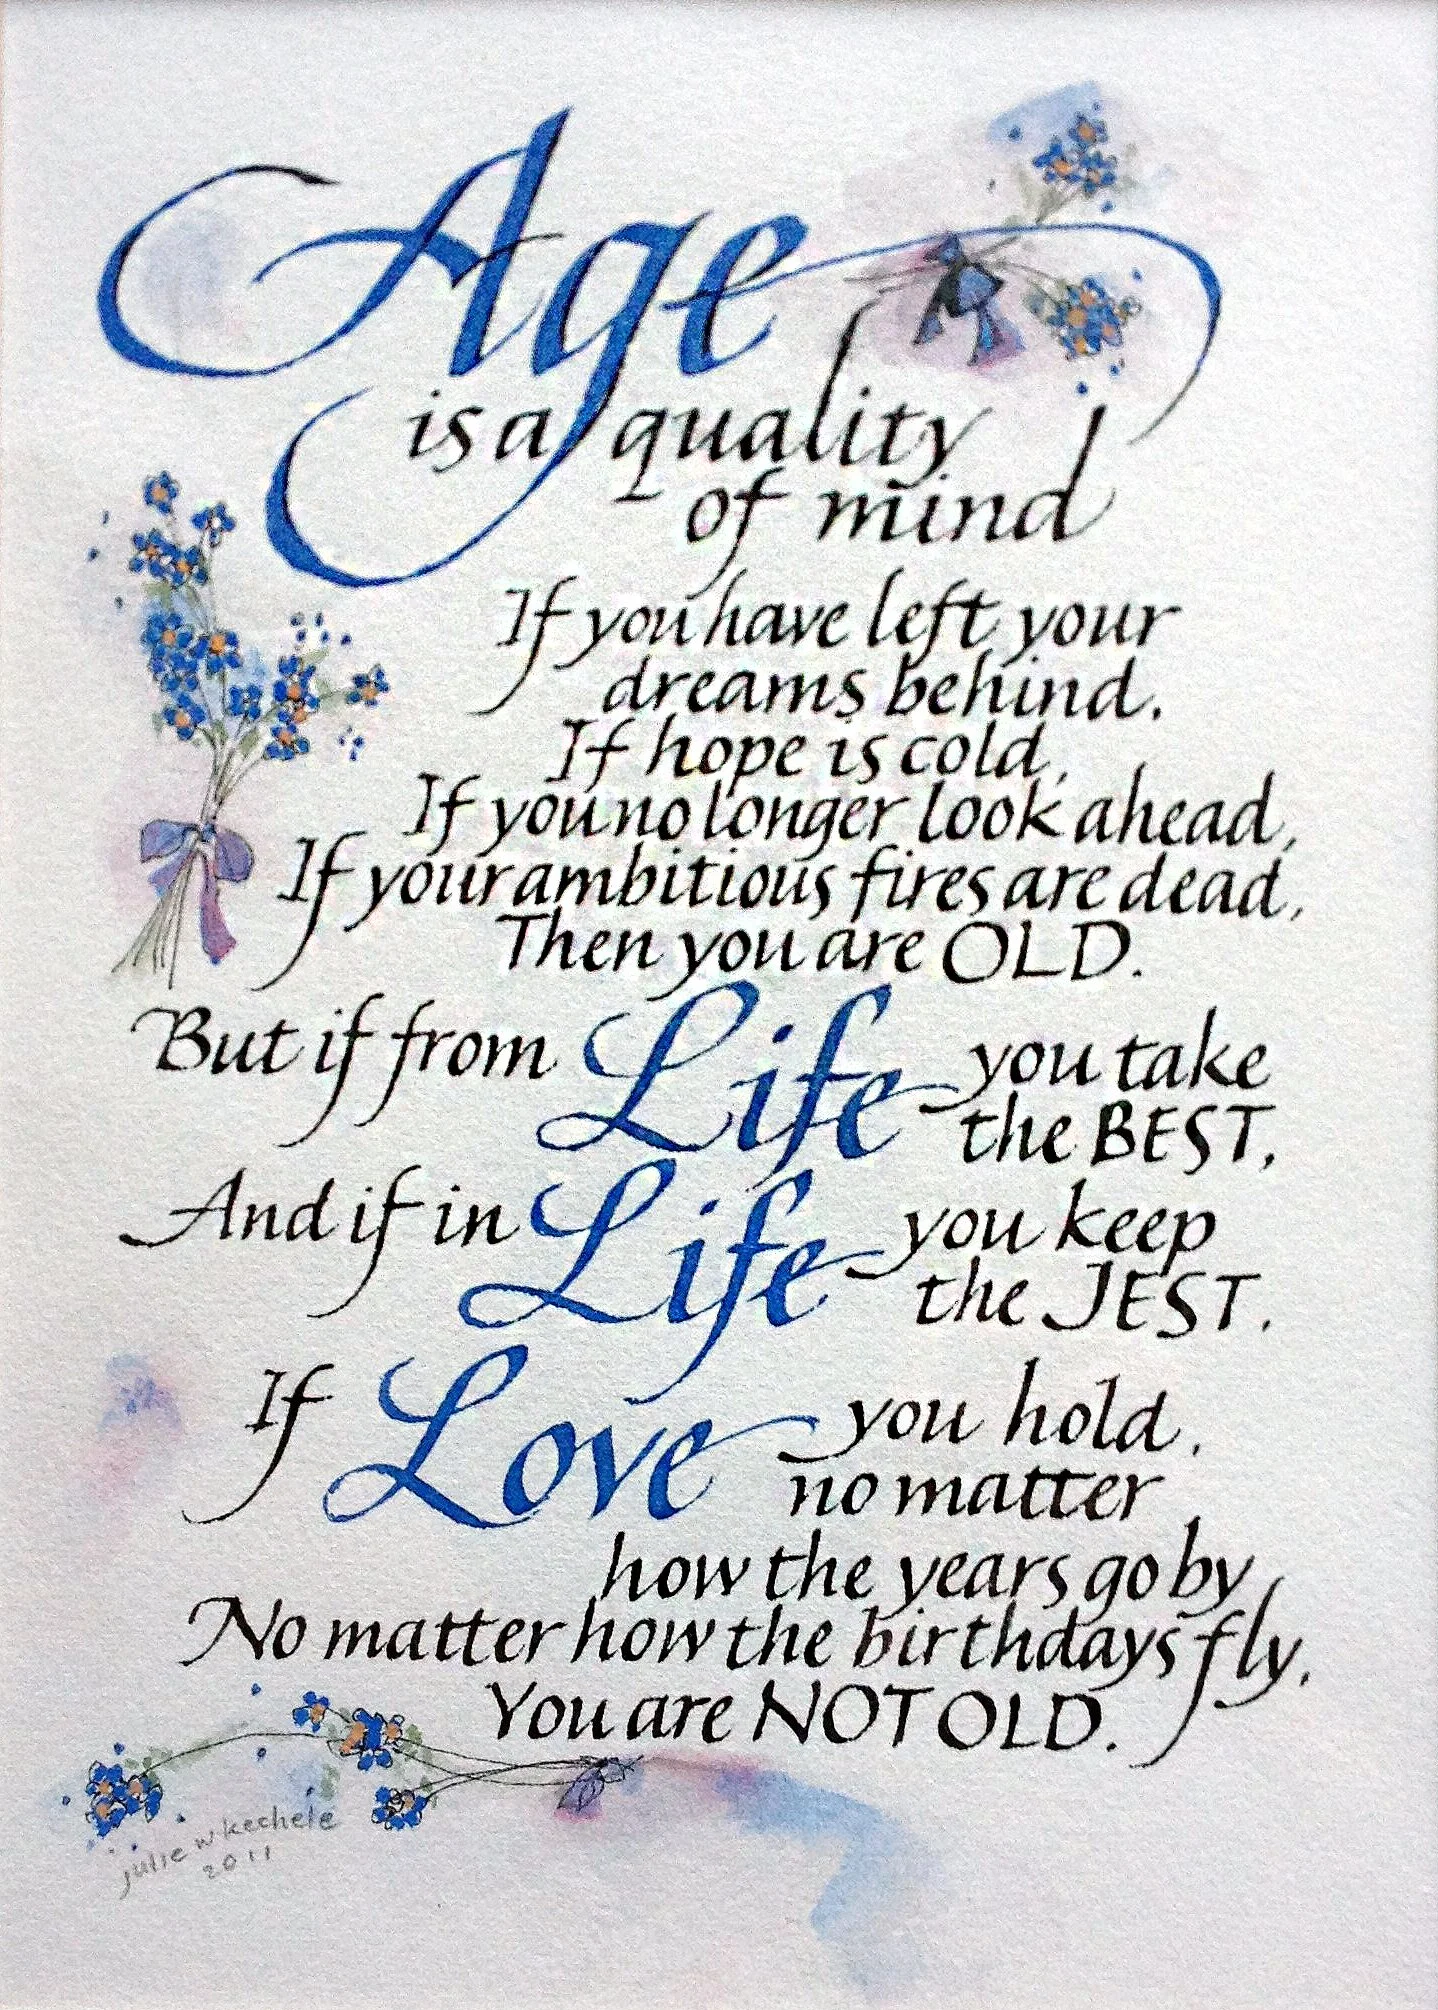 Age
is a quality
of mind
If you have left your
dreams behind.
If hope is cold,
If you no longer look ahead,
If your ambitious fires are dead,
Then you are OLD.
But if from Life you take
the BEST,
And if in Life you keep
the JEST.
If Love you hold,
no matter
how the years go by
No matter how the birthdays fly,
You are NOT OLD.
julie w kechele
2011